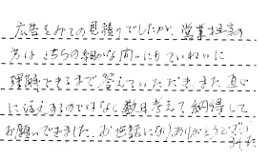 広告をみての見積りでしたが、営業担当の
方はこちらの細かな問いにもていねいに
理解できるまで答えていただき、また直ぐ
に決えるのではなく数日考えて納得して
お願いできました。お世話になりありがとうござい
ました